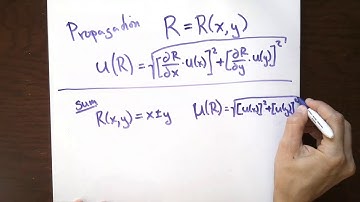 Propagation R = R(x,y)
u(R) = √([∂R/∂x · u(x)]² + [∂R/∂y · u(y)]²)
sum
R(x,y) = x ± y u(R) = √([u(x)]² + [u(y)]²)